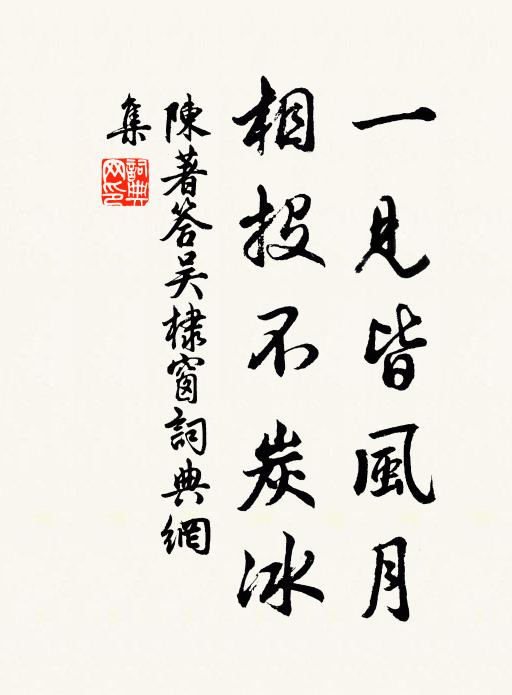 一見皆風月
相投不炭冰
陳著答吳棣窗詞典網
集
詞典網印